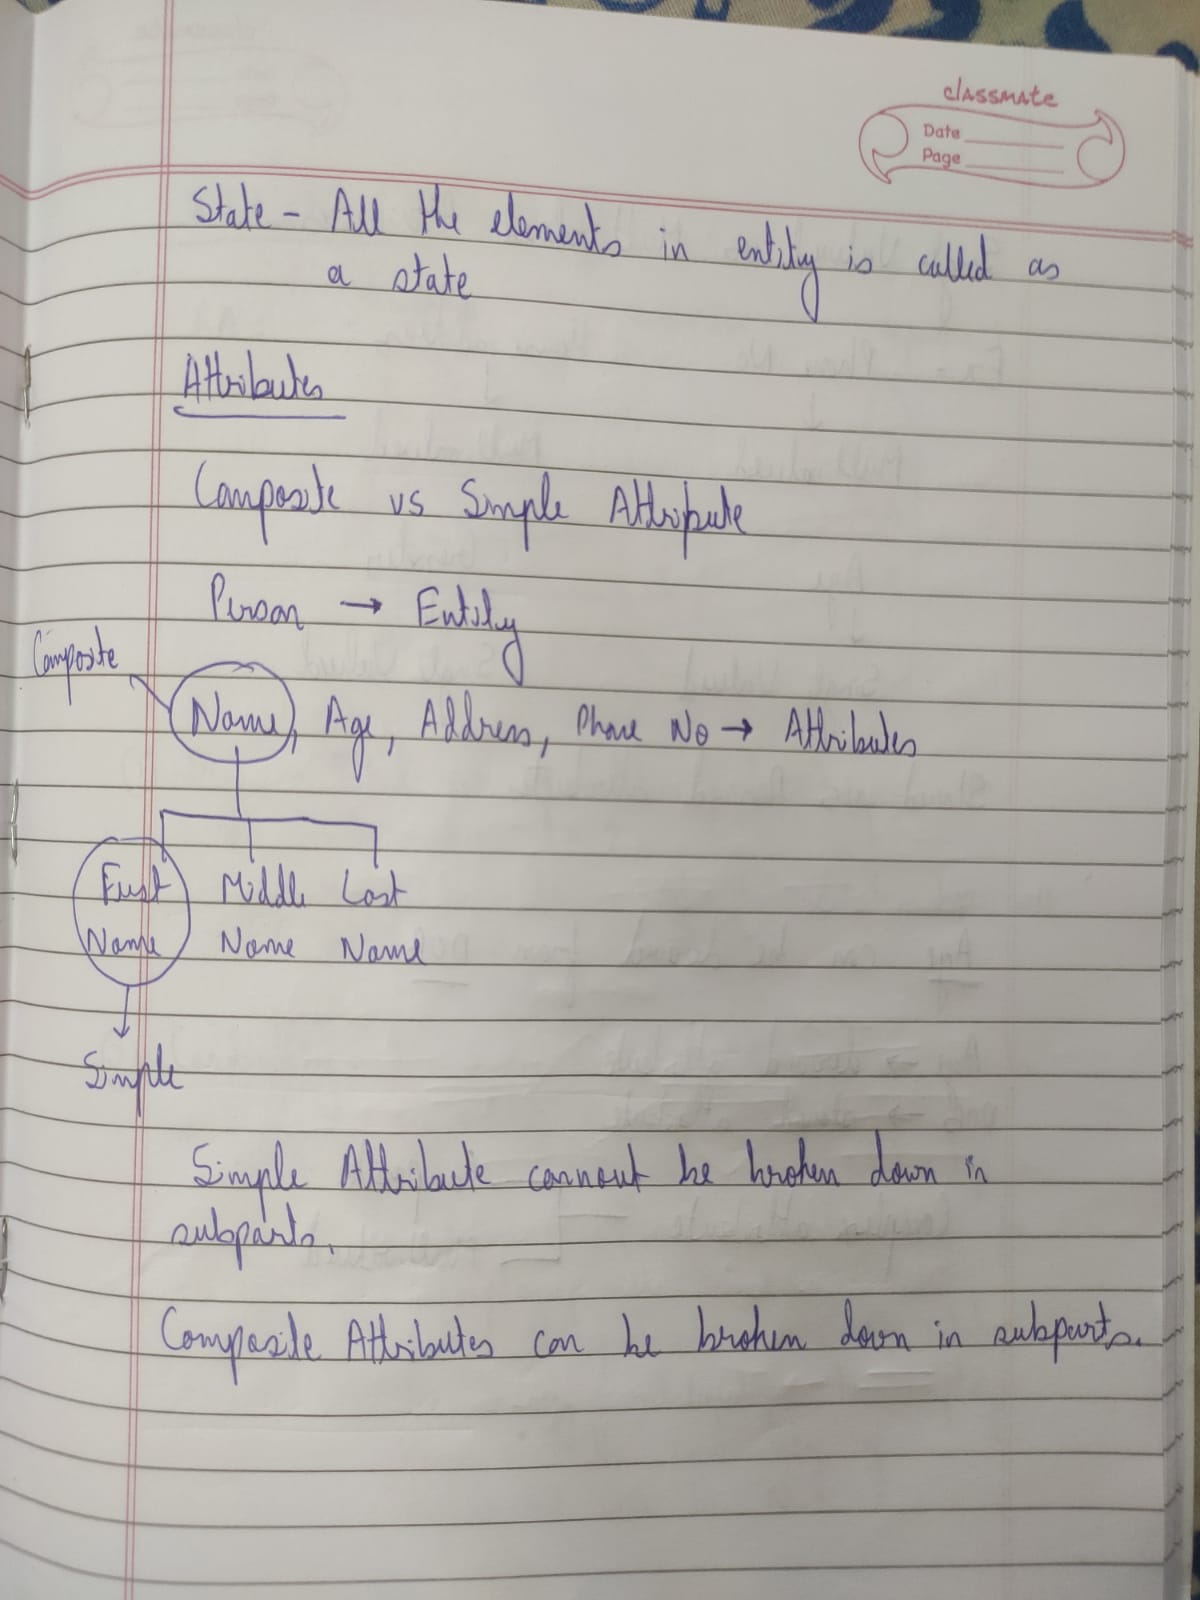 classmate
Date
Page
State - All the elements in entity is called as
a state
Attributes
Composite vs Simple Attribute
Person → Entity
Composite
Name, Age, Address, Phone No → Attributes
First Middle Last
Name Name Name
Simple
Simple Attribute cannout be broken down in
subparts.
Composite Attributes can be broken down in subparts.